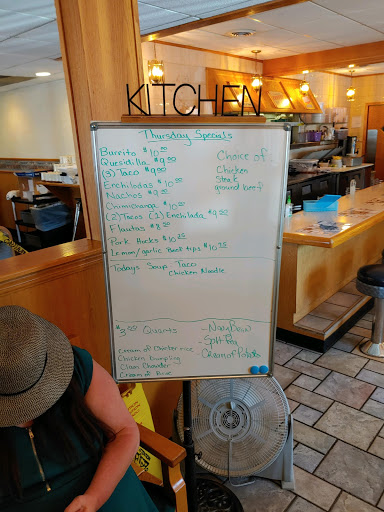 KITCHEN
Thursday Specials
Burrito $10.25
Quesidilla $9.50
(3) Taco $9.00
Enchiladas $10.25
Nachos $9.25
Chimichanga $10.25
(2) Tacos (1) Enchilada $9.25
Flautas $8.25
Pork Hocks $10.25
Lemon/garlic Beef tips $10.25
Choice of
Chicken
Steak
ground beef
Todays Soup - Taco
Chicken Noodle
Quarts
Cream of Chicken rice
Chicken Dumpling
Clam Chowder
Cream of
- Navy Bean
- Split Pea
- Cream of Potato